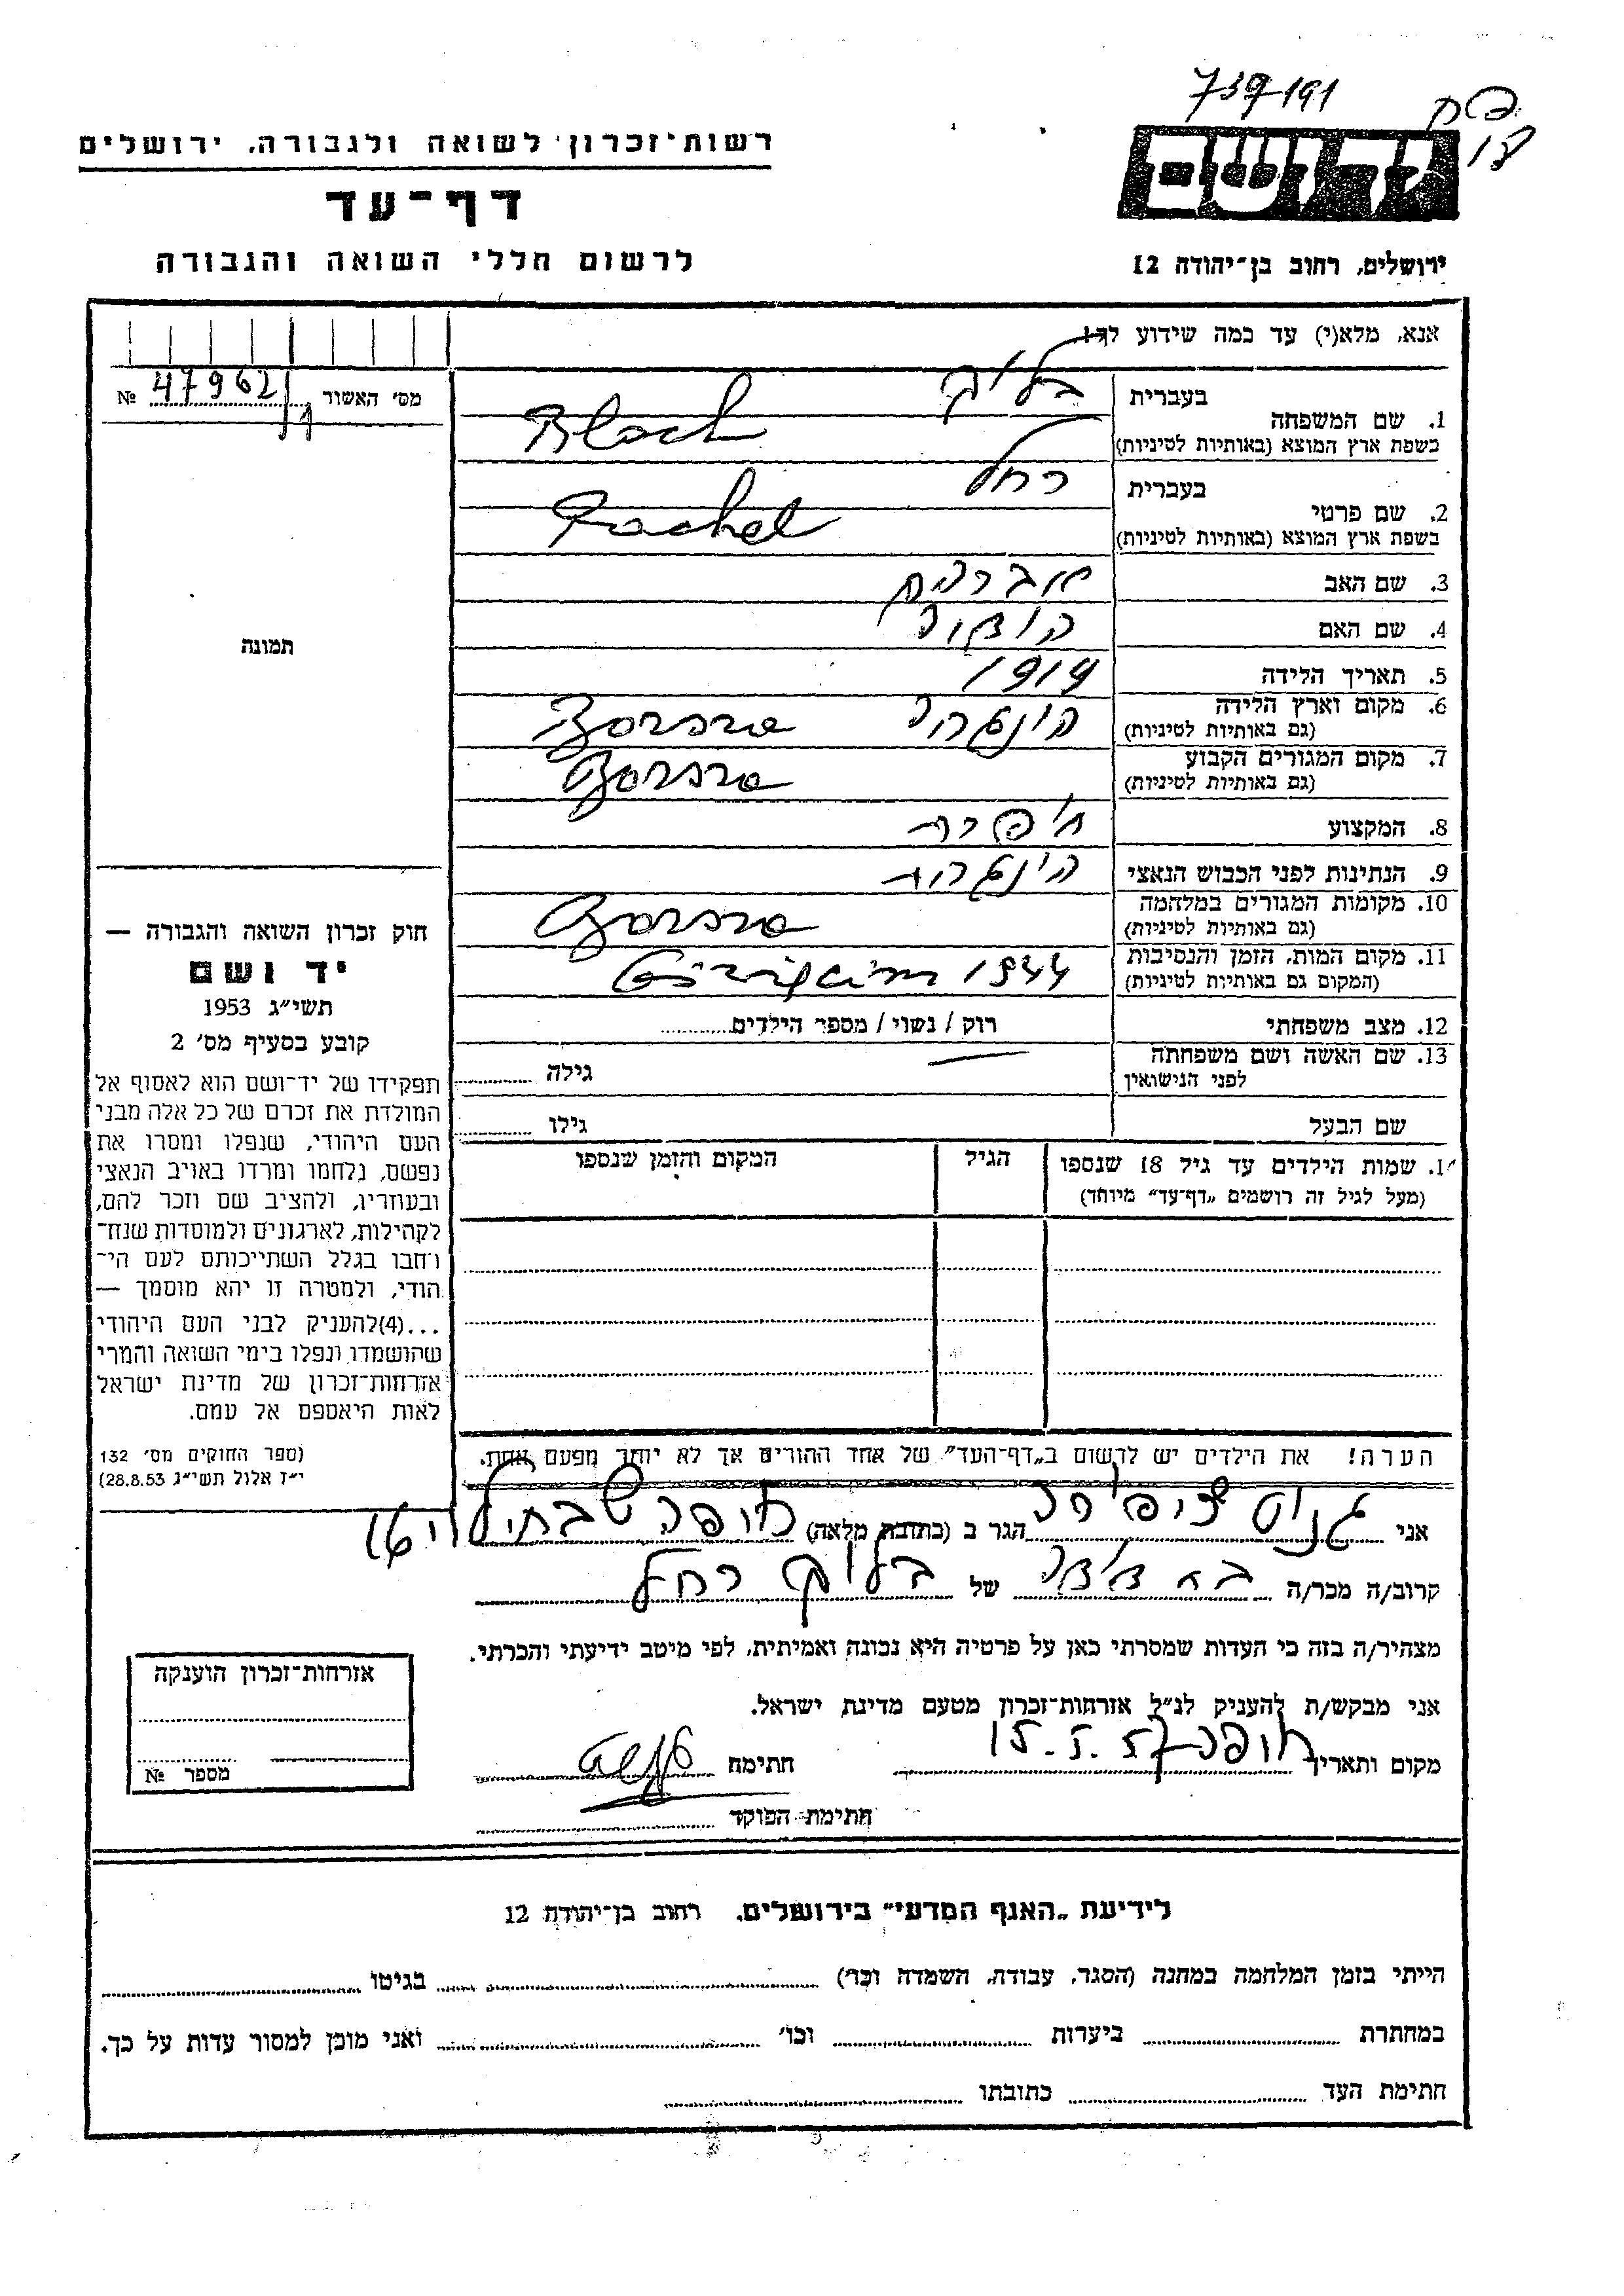 739191
רשות־זכרון לשואה ולגבורה, ירושלים
דף־עד
לרשום חללי השואה והגבורה
ידושם
ירושלים, רחוב בן־יהודה 12
אנא, מלא(י) עד כמה שידוע לך!
מס׳ האשור 47962 №
1. שם המשפחה
בעברית בלוך
בשפת ארץ המוצא (באותיות לטיניות) Bloch
2. שם פרטי
בעברית רחל
בשפת ארץ המוצא (באותיות לטיניות) Rachel
3. שם האב אברהם
4. שם האם
5. תאריך הלידה 1919
6. מקום וארץ הלידה
(גם באותיות לטיניות) Borsra
7. מקום המגורים הקבוע
(גם באותיות לטיניות) Borsra
8. המקצוע
9. הנתינות לפני הכבוש הנאצי
10. מקומות המגורים במלחמה
(גם באותיות לטיניות) Borsra
11. מקום המות, הזמן והנסיבות
(המקום גם באותיות לטיניות) 1944
12. מצב משפחתי רוק / נשוי / מספר הילדים
13. שם האשה ושם משפחתה
לפני הנישואין גילה
שם הבעל גילו
1. שמות הילדים עד גיל 18 שנספו
(מעל לגיל זה רושמים „דף־עד” מיוחד)
הגיל
המקום והזמן שנספו
הערה! את הילדים יש לרשום ב„דף־העד” של אחד ההורים אך לא יותר מפעם אחת.
תמונה
חוק זכרון השואה והגבורה —
יד ושם
תשי״ג 1953
קובע בסעיף מס׳ 2
תפקידו של יד־ושם הוא לאסוף אל
המולדת את זכרם של כל אלה מבני
העם היהודי, שנפלו ומסרו את
נפשם, נלחמו ומרדו באויב הנאצי
ובעוזריו, ולהציב שם וזכר להם,
לקהילות, לארגונים ולמוסדות שנח־
רחבו בגלל השתייכותם לעם הי־
הודי, ולמטרה זו יהא מוסמך —
...(4)להעניק לבני העם היהודי
שהושמדו ונפלו בימי השואה והמרי
אזרחות־זכרון של מדינת ישראל
לאות היאספם אל עמם.
(ספר החוקים מס׳ 132
י״ז אלול תשי״ג 28.8.53)
אני הגר ב (כתובת מלאה) חיפה
קרוב/ה מכר/ה של בלוך רחל
מצהיר/ה בזה כי העדות שמסרתי כאן על פרטיה היא נכונה ואמיתית, לפי מיטב ידיעתי והכרתי.
אני מבקש/ת להעניק לנ״ל אזרחות־זכרון מטעם מדינת ישראל.
מקום ותאריך חיפה 15.5.57 חתימה
חתימת הפוקד
אזרחות־זכרון הוענקה
מספר №
לידיעת „האגף המדעי” בירושלים, רחוב בן־יהודה 12
הייתי בזמן המלחמה במחנה (הסגר, עבודה, השמדה וכד׳) בגיטו
במחתרת ביערות וכו׳ ואני מוכן למסור עדות על כך.
חתימת העד כתובתו